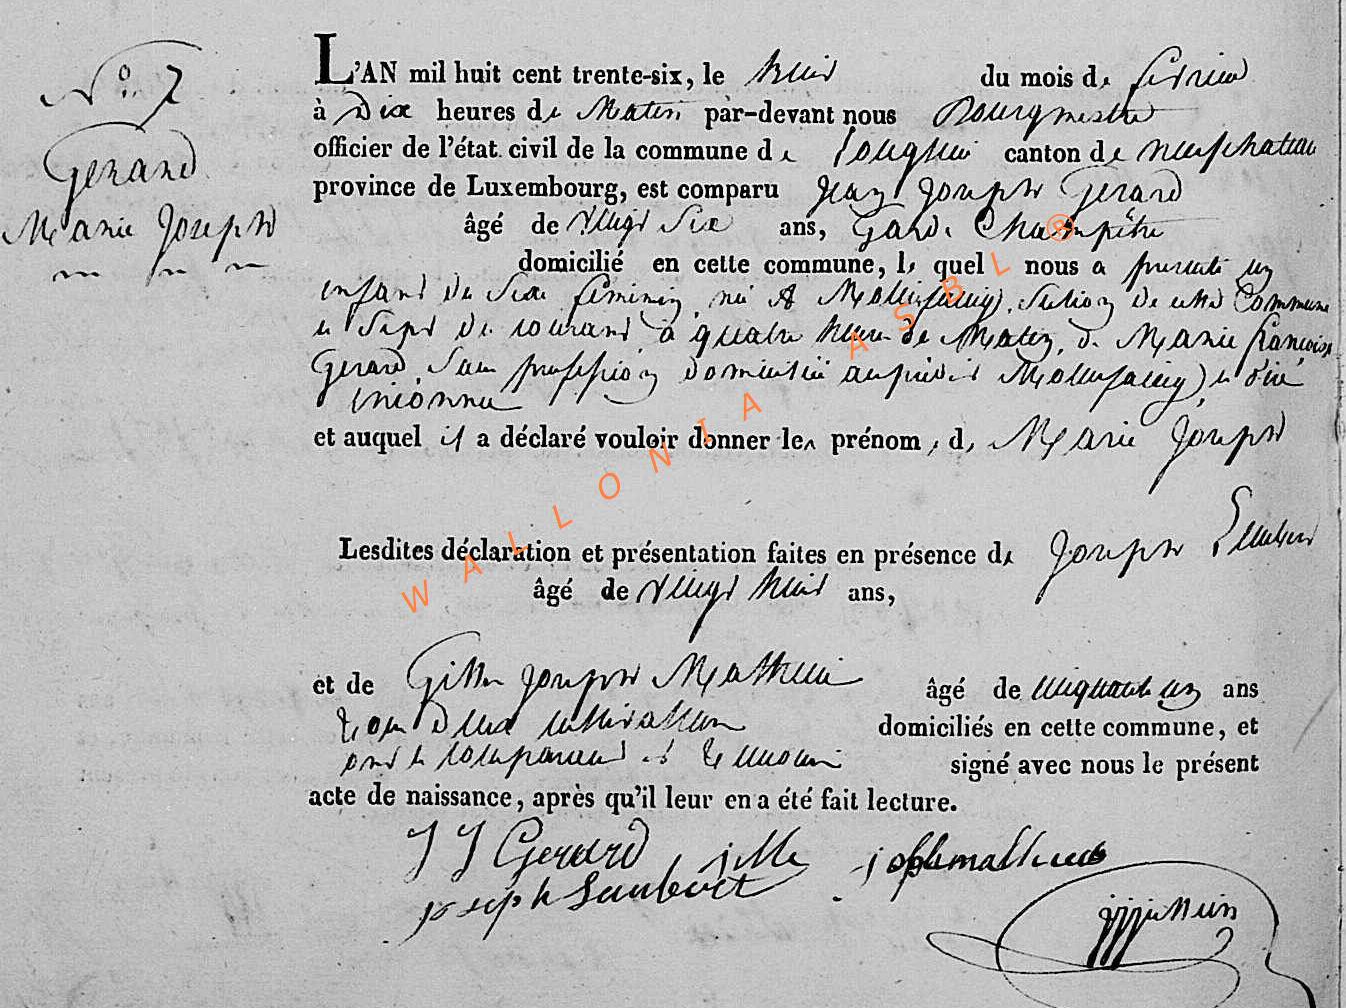 N° 7
Gerard
Marie Joseph
L'AN mil huit cent trente-six, le huit du mois de fevrier
à Dix heures de Matin par-devant nous Bourgmestre
officier de l'état civil de la commune de Longlier canton de neufchateau
province de Luxembourg, est comparu Jean Joseph Gerard
âgé de vingt Six ans, Garde Champêtre
domicilié en cette commune, le quel nous a presenté un
enfant du Sexe feminin, né à Mollinfaing, Section de cette Commune
le Sept du courant à quatre heure de Matin, de Marie françoise
Gerard, Sans profession domiciliée audit Mollinfaing
inconnu
et auquel il a déclaré vouloir donner les prénom, de Marie Joseph
Lesdites déclaration et présentation faites en présence de Joseph
âgé de vingt huit ans,
et de Gille Joseph Mathieu âgé de cinquante un ans
tous Deux cultivateurs domiciliés en cette commune, et
ont le comparant et temoins signé avec nous le présent
acte de naissance, après qu'il leur en a été fait lecture.
J J Gerard jille joseph mathieu
joseph
WALLONIA ASBL ®